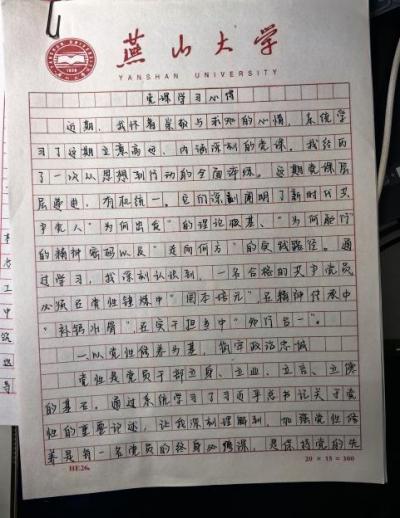 燕山大学
YANSHAN UNIVERSITY
党课学习心得
近期，我怀着崇敬与求知的心情，系统学
习了这期立意高远、内涵深刻的党课。我经历
了一次从思想到行动的全面淬炼。这期党课层
层递进，有机统一。它们深刻阐明了新时代共
产党人“为何出发”的理论根基、“为何能行”
的精神密码以及“走向何方”的实践路径。通
过学习，我深刻认识到，一名合格的共产党员
必须在党性锤炼中“固本培元”在精神传承中
“补钙壮骨”在实干担当中“知行合一”。
一、以党性修养为基，筑牢政治忠诚
党性是党员干部立身、立业、立言、立德
的基石。通过系统学习了习近平总书记关于党
性的重要论述，让我深刻理解到，加强党性修
养是每一名党员的终身必修课，是保持党的先
HE26.
20 × 15 = 300